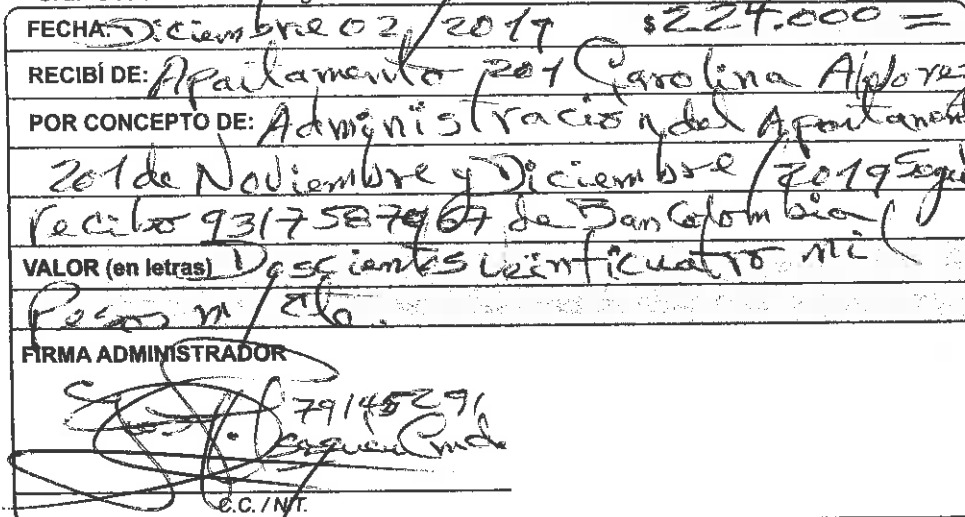 FECHA: Diciembre 02/2019 $224.000=
RECIBÍ DE: Apartamento 201 Carolina
POR CONCEPTO DE: Administración del Apartamento
201 de Noviembre y Diciembre/2019 Según
recibo 9317587967 de Bancolombia
VALOR (en letras) Doscientos veinticuatro mil
Pesos m/cte.
FIRMA ADMINISTRADOR
79145291
C.C. / NIT.